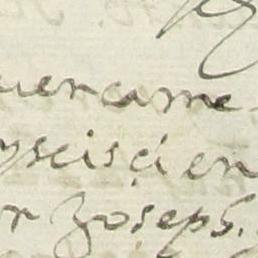 uencame
yscisçien
r Joseph.